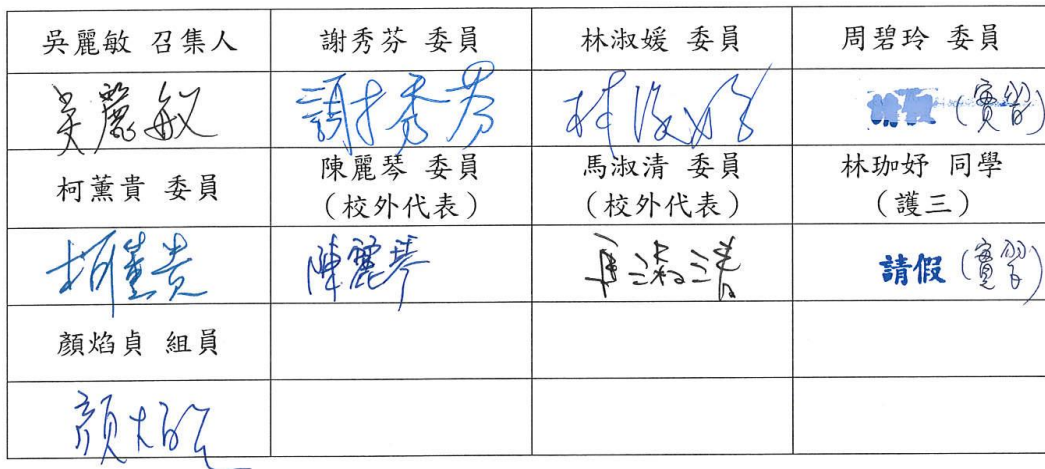 吳麗敏 召集人
謝秀芬 委員
林淑媛 委員
周碧玲 委員
吳麗敏
謝秀芬
林淑媛
請假 (實習)
柯薰貴 委員
陳麗琴 委員
(校外代表)
馬淑清 委員
(校外代表)
林珈妤 同學
(護三)
柯薰貴
陳麗琴
馬淑清
請假 (實習)
顏焰貞 組員